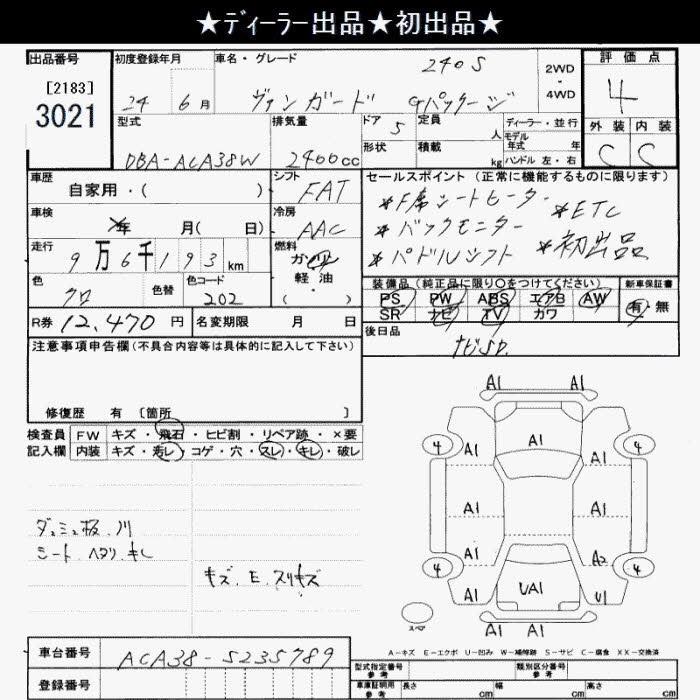 ★ディーラー出品★初出品★
出品番号
[2183]
3021
初度登録年月
24 6月
車名・グレード
240S
ヴァンガード Gパッケージ
2WD
・
4WD
評価点
4
外装 内装
C C
型式
DBA-ACA38W
排気量
2400cc
ドア 5
形状
定員 人
積載 kg
ディーラー・並行
モデル
年式 年
ハンドル 左・右
車歴
自家用・( )
シフト
FAT
車検
年 月( 日)
冷房
AAC
走行
9万6千193km
燃料
ガソリン
軽・油
・( )
色
クロ
色替
色コード
202
R券 12,470円
名変期限 月 日
セールスポイント (正常に機能するものに限ります)
*F席シートヒーター *ETC
*バックモニター
*パドルシフト *初出品
装備品(純正品に限り○をつけてください)
PS PW ABS エアB AW
SR ナビ TV カワ
新車保証書
有・無
後日品
ナビSD.
注意事項申告欄(不具合内容等は具体的に記入して下さい)
修復歴 有 [箇所 ]
検査員
記入欄
FW キズ・飛石・ヒビ割・リペア跡・×要
内装 キズ・汚レ・コゲ・穴・スレ・キレ・破レ
シート ヘタリ キレ
キズ. E. スリキズ
A1 A1
4 A1 A1 A1 4
A1 A1
A1 A2
4 4
A1 UA1 U1
A1 A1
スペア
A-キズ E-エクボ U-凹み W-補修跡 S-サビ C-腐食 XX-交換済
車台番号 ACA38-5235789
登録番号
型式指定番号
参考
類別区分番号
参考
車庫証明用
参考
長さ cm 幅 cm 高さ cm